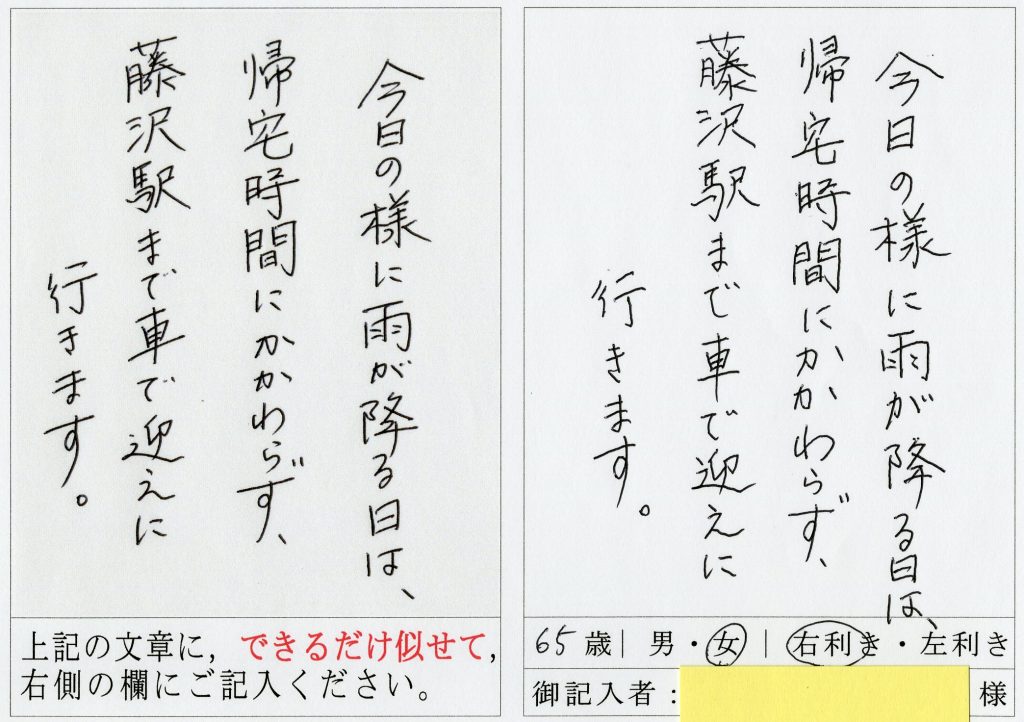 今日の様に雨が降る日は、
帰宅時間にかかわらず、
藤沢駅まで車で迎えに
行きます。
上記の文章に，できるだけ似せて，
右側の欄にご記入ください。
今日の様に雨が降る日は、
帰宅時間にかかわらず、
藤沢駅まで車で迎えに
行きます。
65歳| 男・女 | 右利き・左利き
御記入者： 様